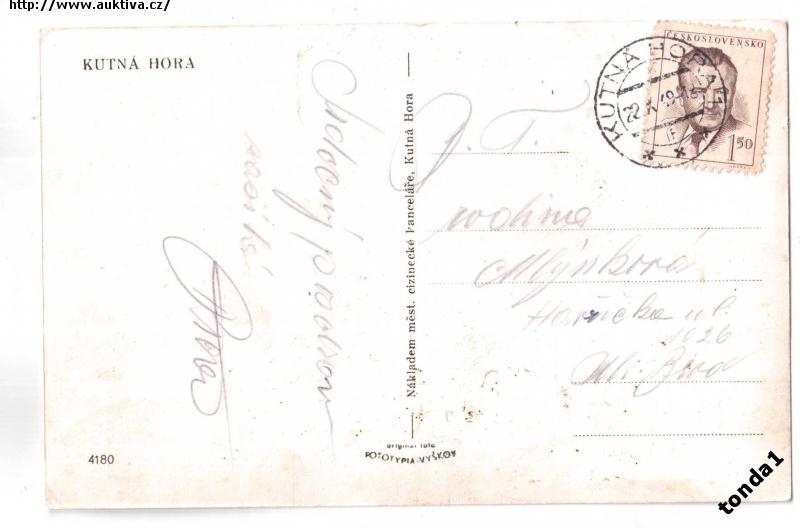 http://www.auktiva.cz/
KUTNÁ HORA
ČESKOSLOVENSKO
1 50
KUTNÁ HORA 1
22.X.49
Nákladem měst. cizinecké kanceláře, Kutná Hora
srdečný pozdrav
J. T.
rodina
Mlýnková
Havlíčka ul.
1026
Uh. Brod
4180
original foto
FOTOTYPIA-VYŠKOV
tonda1